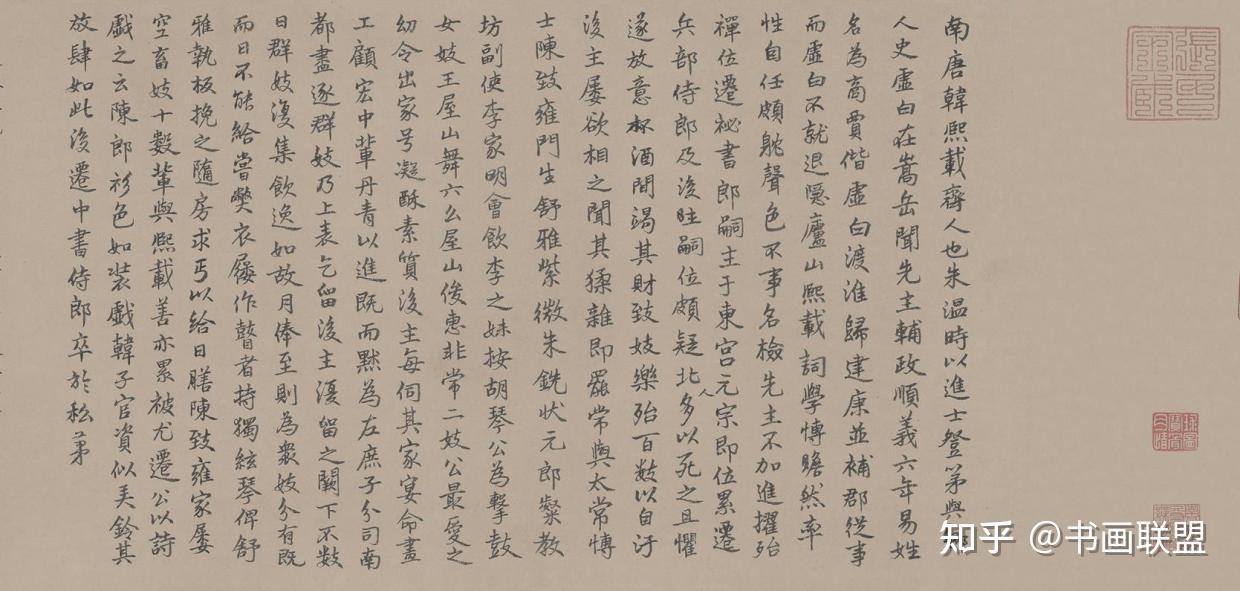 南唐韓熙載齊人也朱溫時以進士登第與
人史虛白在嵩岳聞先主輔政順義六年易姓
名為商賈偕虛白渡淮歸建康並補郡從事
而虛白不就退隱廬山熙載詞學博贍然率
性自任頗躭聲色不事名檢先主不加進擢殆
禪位遷祕書郎嗣主于東宮元宗即位累遷
兵部侍郎及後主嗣位頗疑北人多以死之且懼
遂放意杯酒間竭其財致妓樂殆百數以自汙
後主屢欲相之聞其猱雜即罷常與太常博
士陳致雍門生舒雅紫微朱銑狀元郎粲教
坊副使李家明會飲李之妹按胡琴公為擊鼓
女妓王屋山舞六么屋山俊惠非常二妓公最愛之
幼令出家号凝酥素質後主每伺其家宴命畫
工顧宏中輩丹青以進既而黜為左庶子分司南
都盡逐群妓乃上表乞留後主復留之闕下不數
日群妓復集飲逸如故月俸至則為衆妓分有既
而日不能給嘗弊衣屨作瞽者持獨絃琴俾舒
雅執板挽之隨房求丐以給日膳陳致雍家屢
空畜妓十數輩與熙載善亦累被尤遷公以詩
戲之云陳郎衫色如裝戲韓子官資似美鈴其
放肆如此後遷中書侍郎卒於私第
知乎 @书画联盟